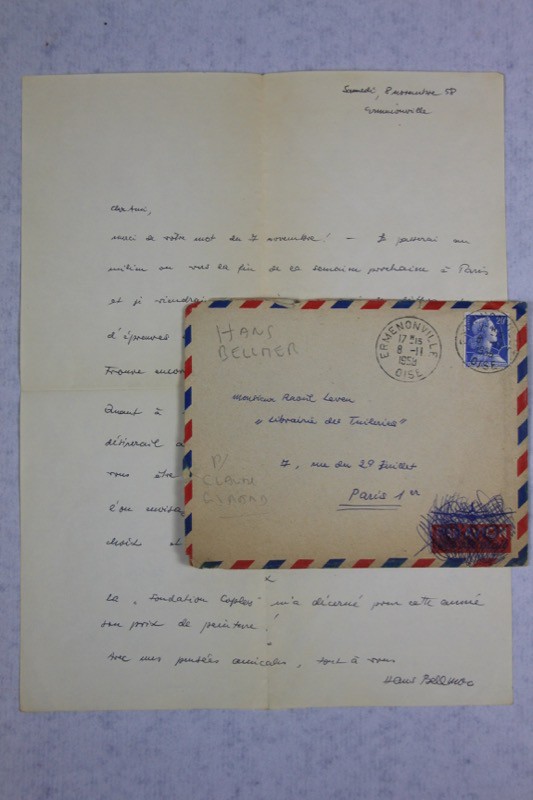 Samedi, 8 novembre 58
Ermenonville
Cher Ami,
merci de votre mot du 7 novembre! — Je passerai au
milieu ou vers la fin de la semaine prochaine à Paris
et je viendrai
d'épreuves
Trouve encor
Quant à
désirerait a
vous être
l'on envisa
choix et
La „Fondation Copley" m'a décerné pour cette année
son prix de peinture!
Avec mes pensées amicales, tout à vous
Hans Bellmer
HANS
BELLMER
ERMENONVILLE
17 H 15
8 -11
1958
OISE
20F
Monsieur Raoul Leven
„Librairie des Tuileries"
7, rue du 29 Juillet
Paris 1er
P/
CLAUDE